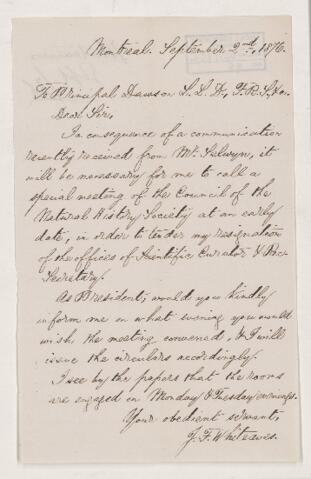 Montreal. September 2nd, 1876.
To Principal Dawson L.L.D., F.R.S., &c.
Dear Sir,
In consequence of a communication
recently received from Mr. Selwyn, it
will be necessary for me to call a
special meeting of the Council of the
Natural History Society at an early
date, in order to tender my resignation
of the offices of Scientific Curator & Rec.
Secretary.
As President, would you kindly
inform me on what evening you would
wish the meeting convened, & I will
issue the circulars accordingly.
I see by the papers that the rooms
are engaged on Monday & Tuesday evenings.
Your obedient servant,
J. F. Whiteaves.